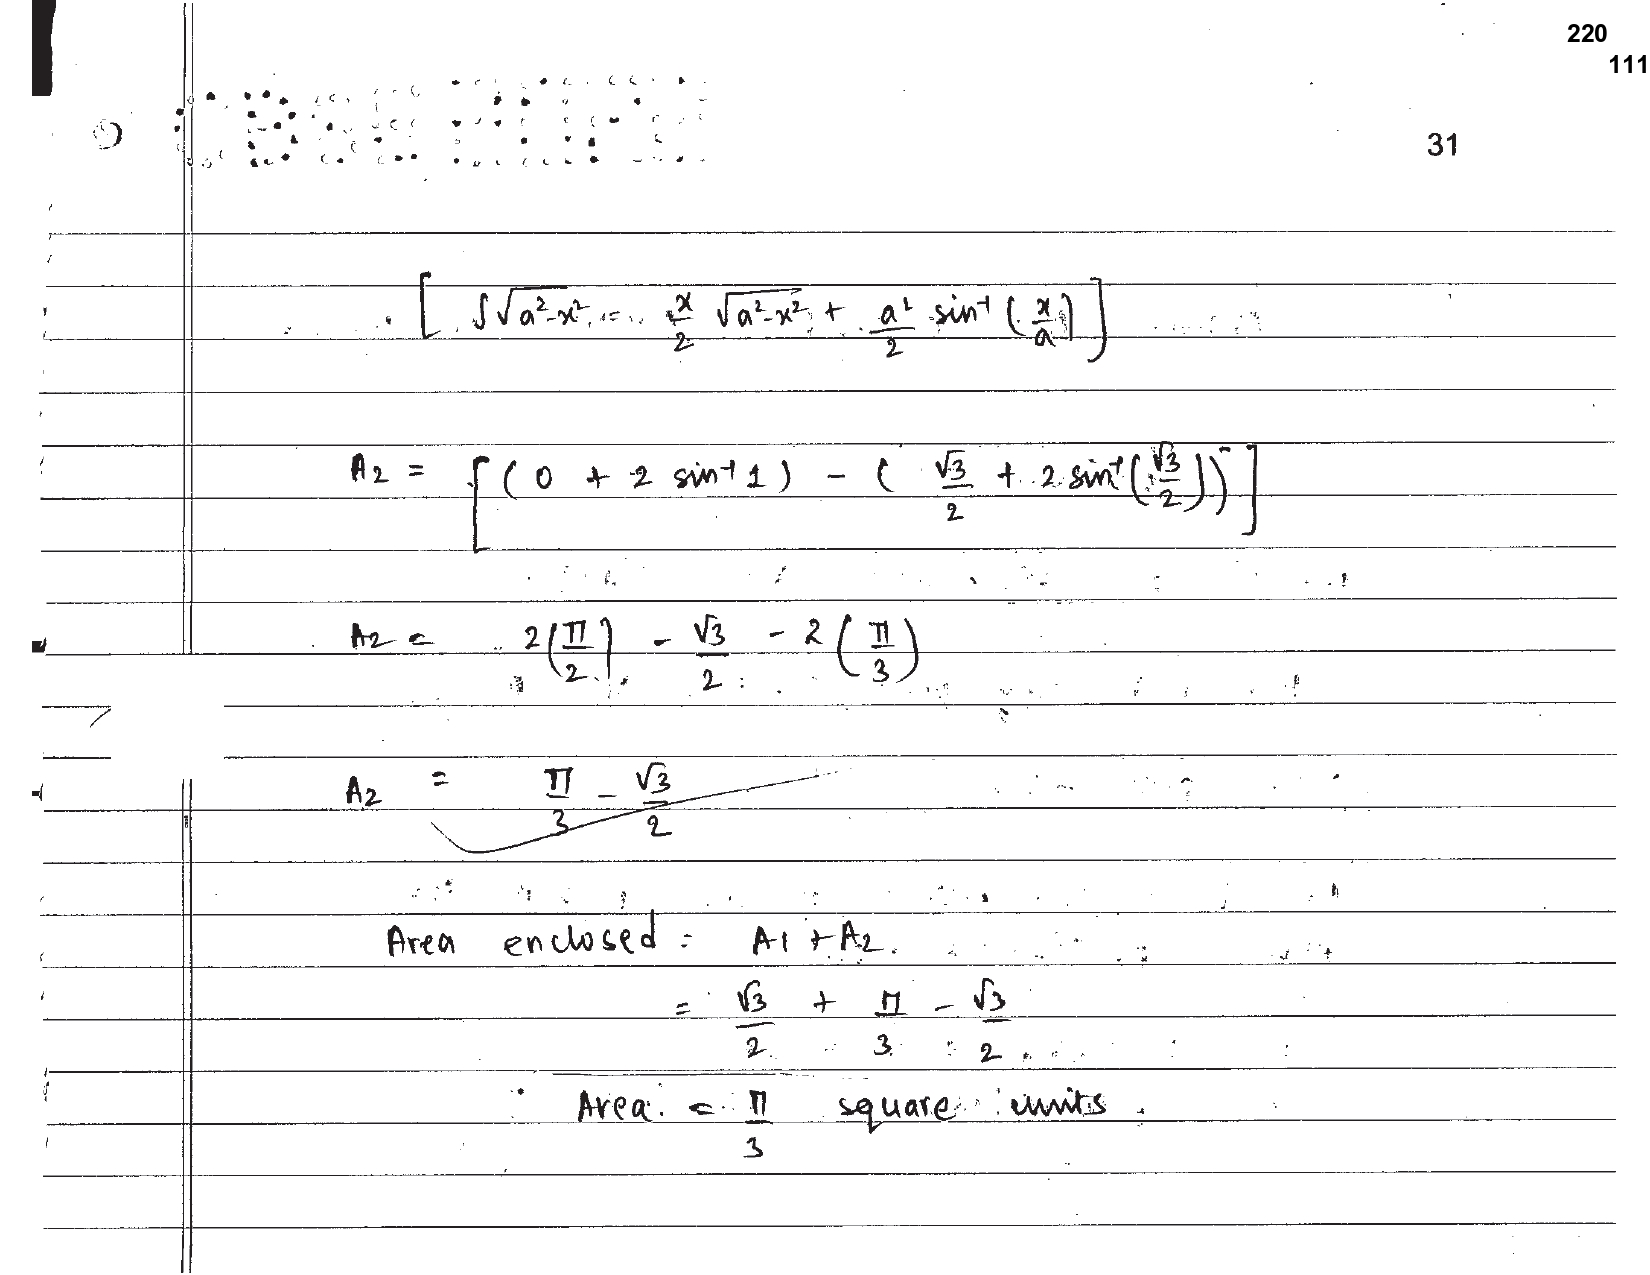 220
111
31
[ ∫√(a²-x²) = x/2 √(a²-x²) + a²/2 sin⁻¹ (x/a) ]
A2 = [ ( 0 + 2 sin⁻¹ 1 ) - ( √3/2 + 2 sin⁻¹ (√3/2) ) ]
A2 = 2(π/2) - √3/2 - 2 (π/3)
A2 = π/3 - √3/2
Area enclosed = A1 + A2.
= √3/2 + π/3 - √3/2
Area = π/3 square units.